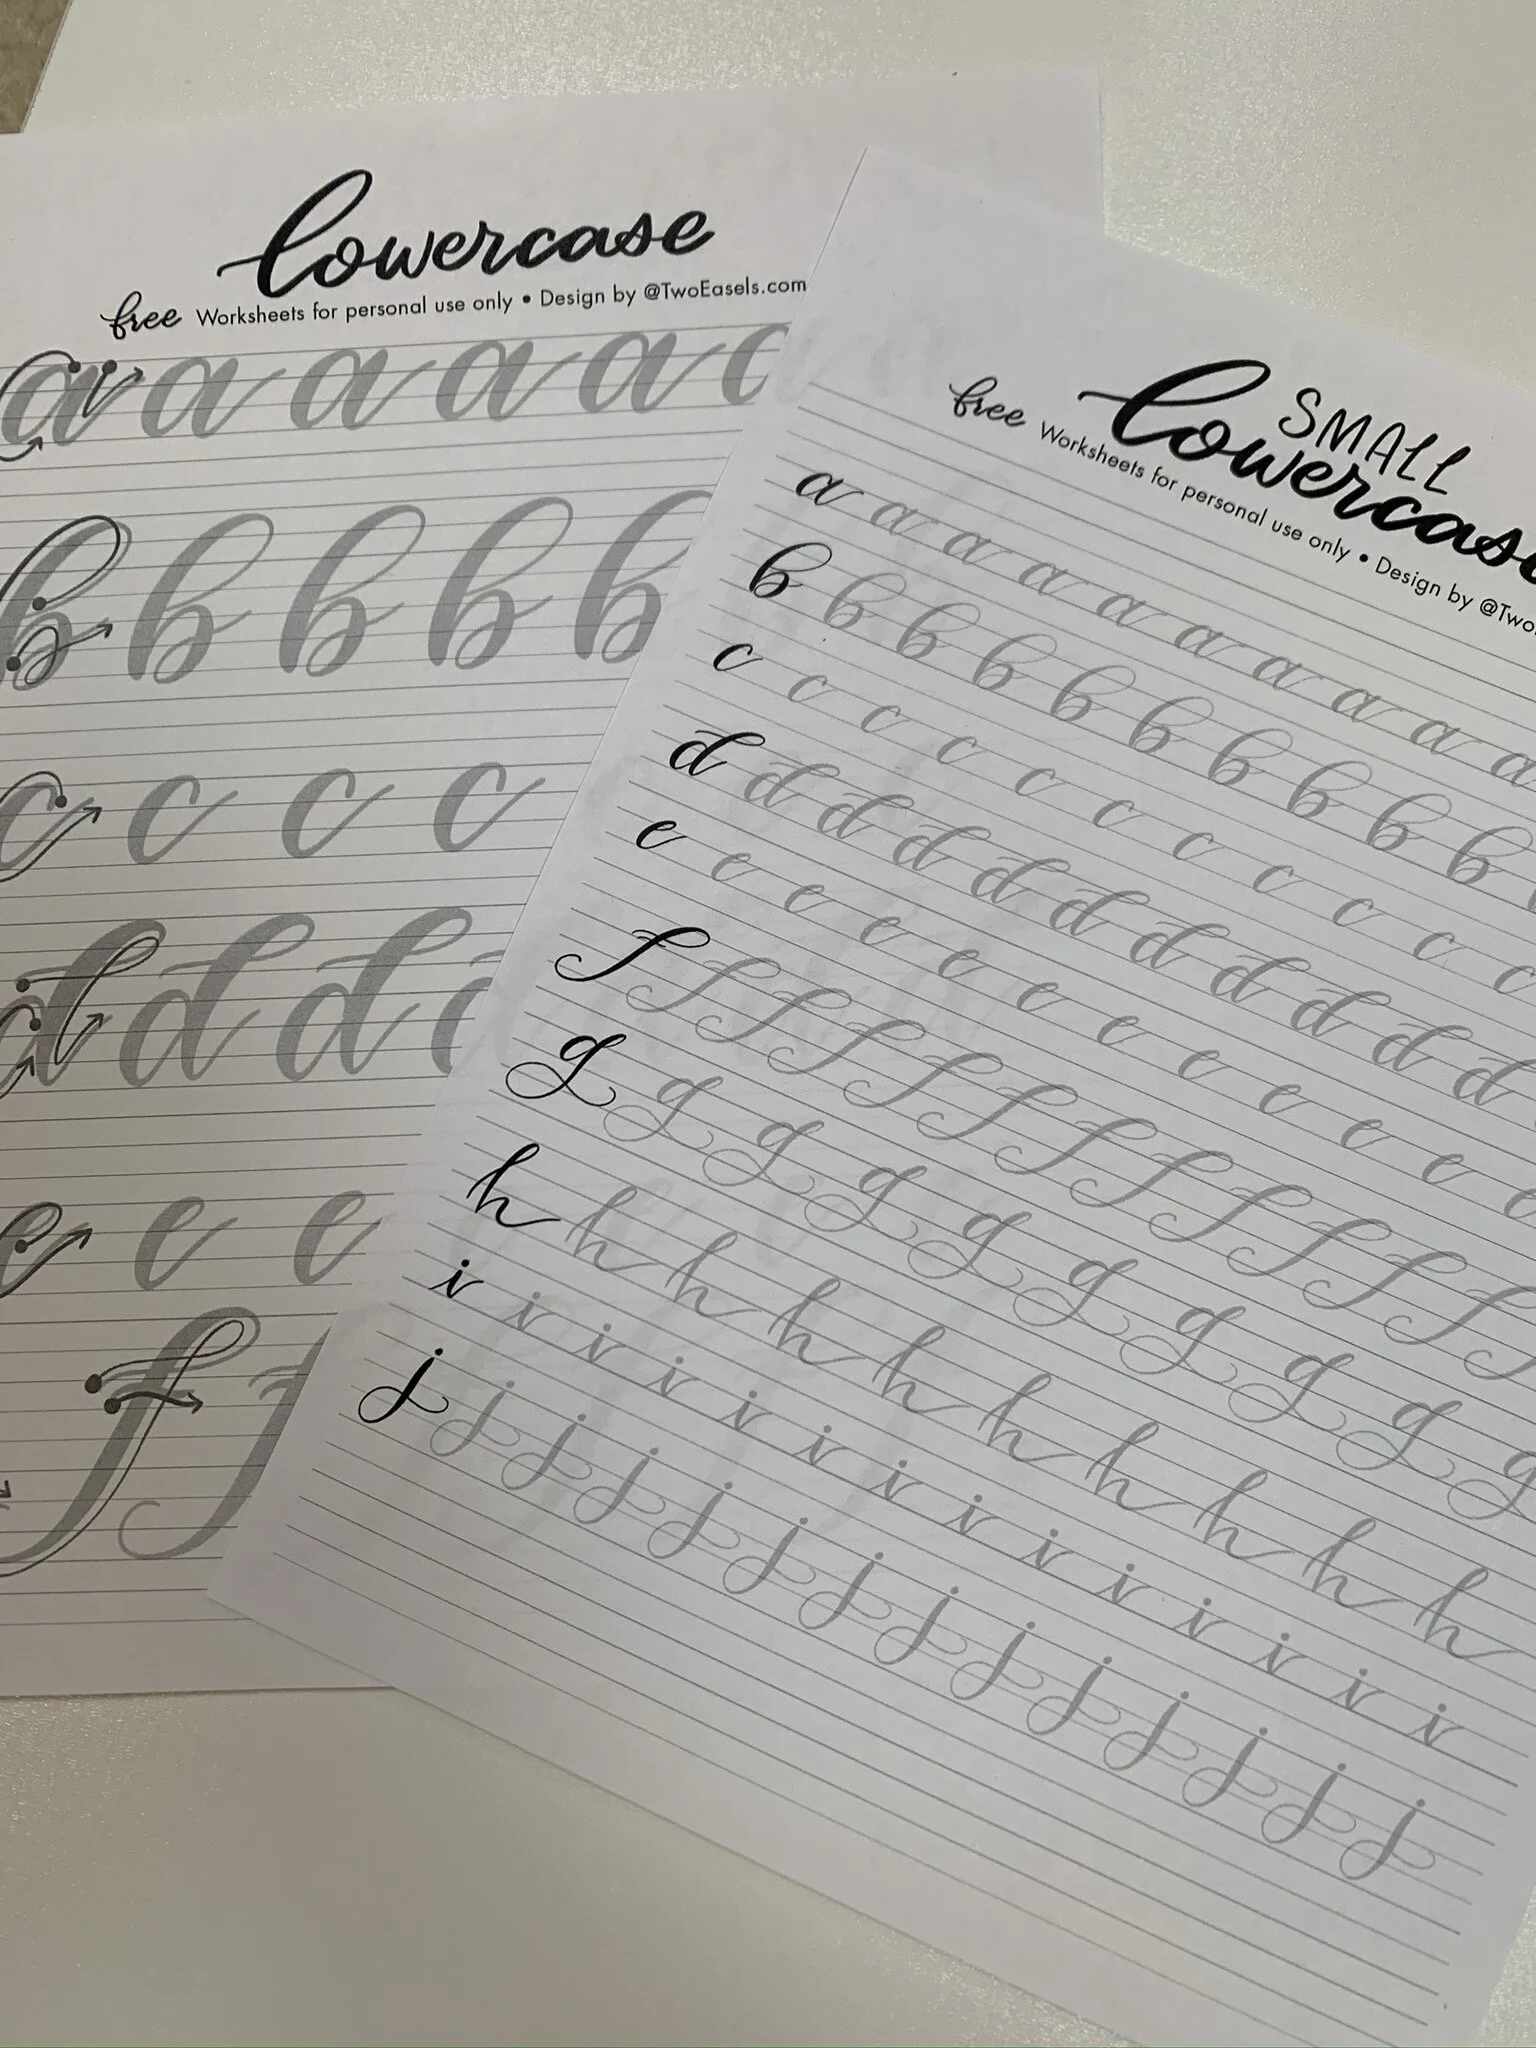 lowercase
free Worksheets for personal use only • Design by @TwoEasels.com
a a a a a
b b b b b
c c c c
d d d
e e e
f f
SMALL
lowercase
free Worksheets for personal use only • Design by @Two
a a a a a a a a a a
b b b b b b b b b b
c c c c c c c c c c c
d d d d d d d d d d d
e e e e e e e e e e e e
f f f f f f f f f f f f
g g g g g g g g g g
h h h h h h h h h h
i i i i i i i i i i i i i i
j j j j j j j j j j j j j j